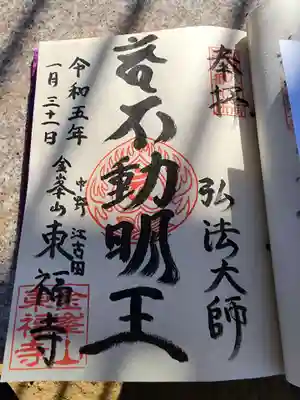 奉拝
弘法大師
若不動明王
令和五年
一月三十一日
中野
江古田
金峯山
東福寺
金峯山
東福寺